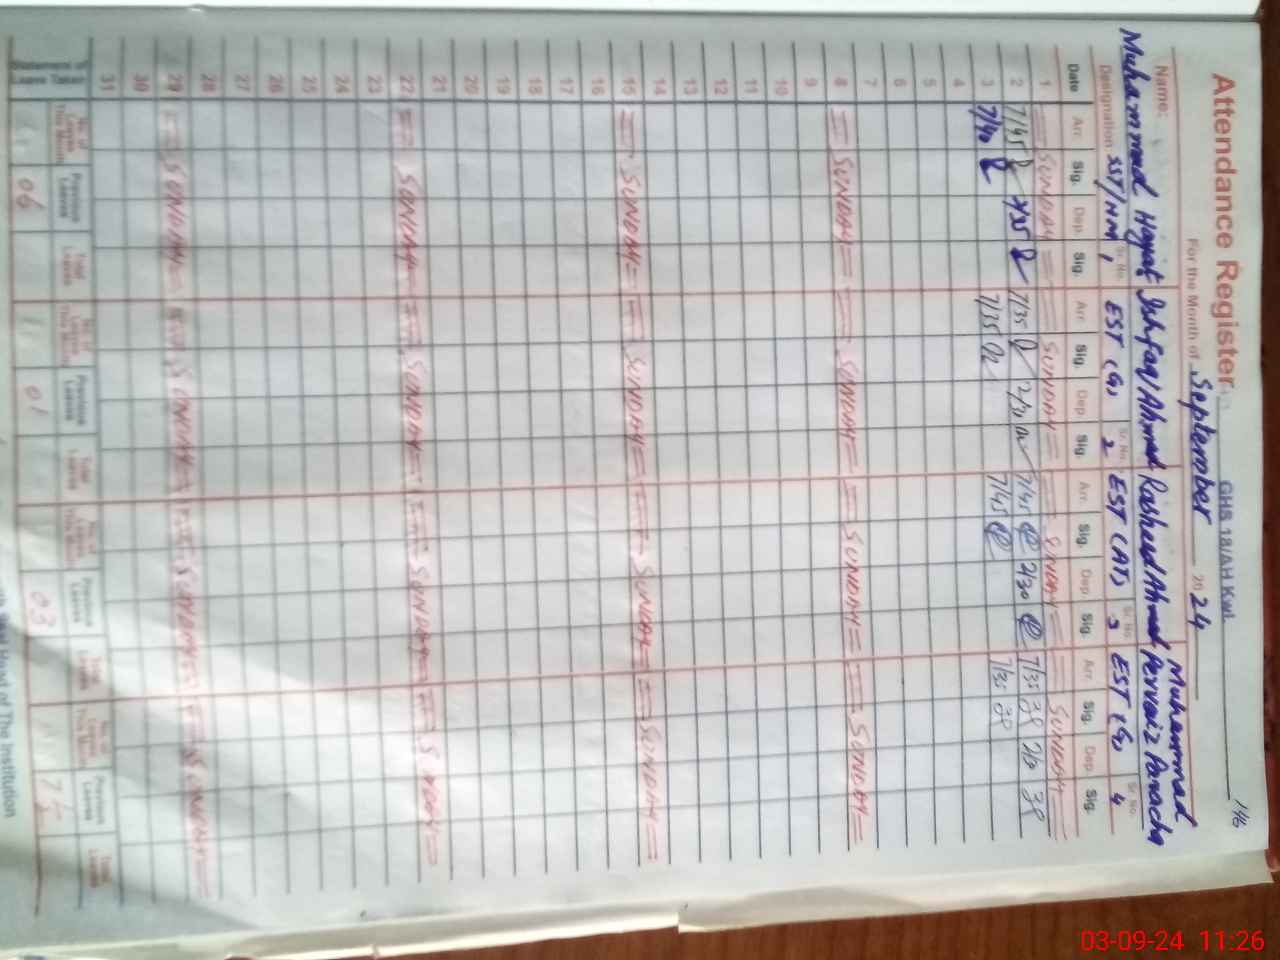 146
GHS 18/AH Kwl.
Attendance Register
For the Month of September 2024
Name: Muhammad Hayat Ishfaq Ahmad Rasheed Ahmad Muhammad Pervaiz Paracha
Designation SST/HM Sr. No. 1 EST (G) Sr. No. 2 EST (AT) Sr. No. 3 EST (G) Sr. No. 4
Date Arr. Sig. Dep. Sig. Arr. Sig. Dep. Sig. Arr. Sig. Dep. Sig. Arr. Sig. Dep. Sig.
1 SUNDAY SUNDAY SUNDAY SUNDAY
2 7/45 7/35 7/45 2/30 7/35
3 7/40 7/35 7/45 7/35
4
5
6
7
8 SUNDAY SUNDAY SUNDAY SUNDAY
9
10
11
12
13
14
15 SUNDAY SUNDAY SUNDAY SUNDAY
16
17
18
19
20
21
22 SUNDAY SUNDAY SUNDAY SUNDAY
23
24
25
26
27
28
29 SUNDAY SUNDAY SUNDAY SUNDAY
30
31
Statement of Leave Taken No. of Leaves This Month Previous Leaves Total Leaves No. of Leaves This Month Previous Leaves Total Leaves No. of Leaves This Month Previous Leaves Total Leaves No. of Leaves This Month Previous Leaves Total Leaves
06 01 03
Head of The Institution
03-09-24 11:26